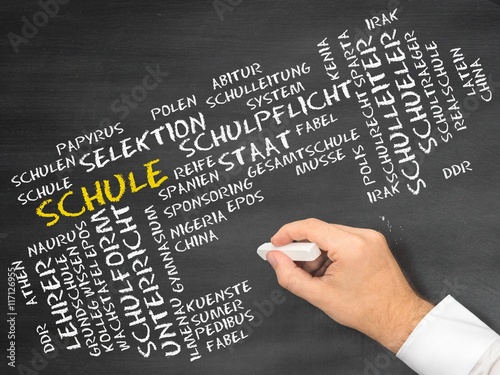 IRAK
KENIA
SPARTA
SCHULLEITER
SCHUELER
SCHULTRAEGER
REALSCHULE
LATEIN
CHINA
ABITUR
SCHULLEITUNG
SYSTEM
POLEN
SCHULPFLICHT
PAPYRUS
SELEKTION
STAAT
FABEL
SCHULEN
SCHULE
SCHULE
REIFE
GESAMTSCHULE
MUSSE
SPANIEN
SPONSORING
POLIS
SCHULRICHTS
IRAK
DDR
NIGERIA
EPOS
CHINA
NAURUS
ATHEN
DDR
LEHRER
GRUNDSCHULE
KOLLEG
WISSEN
STAFETTE
EPOS
WACHSTAFEL
SCHULFORM
UNTERRICHT
GYMNASIUM
ILMENAU
KUENSTE
SUMER
PEDIBUS
FABEL
#117126955